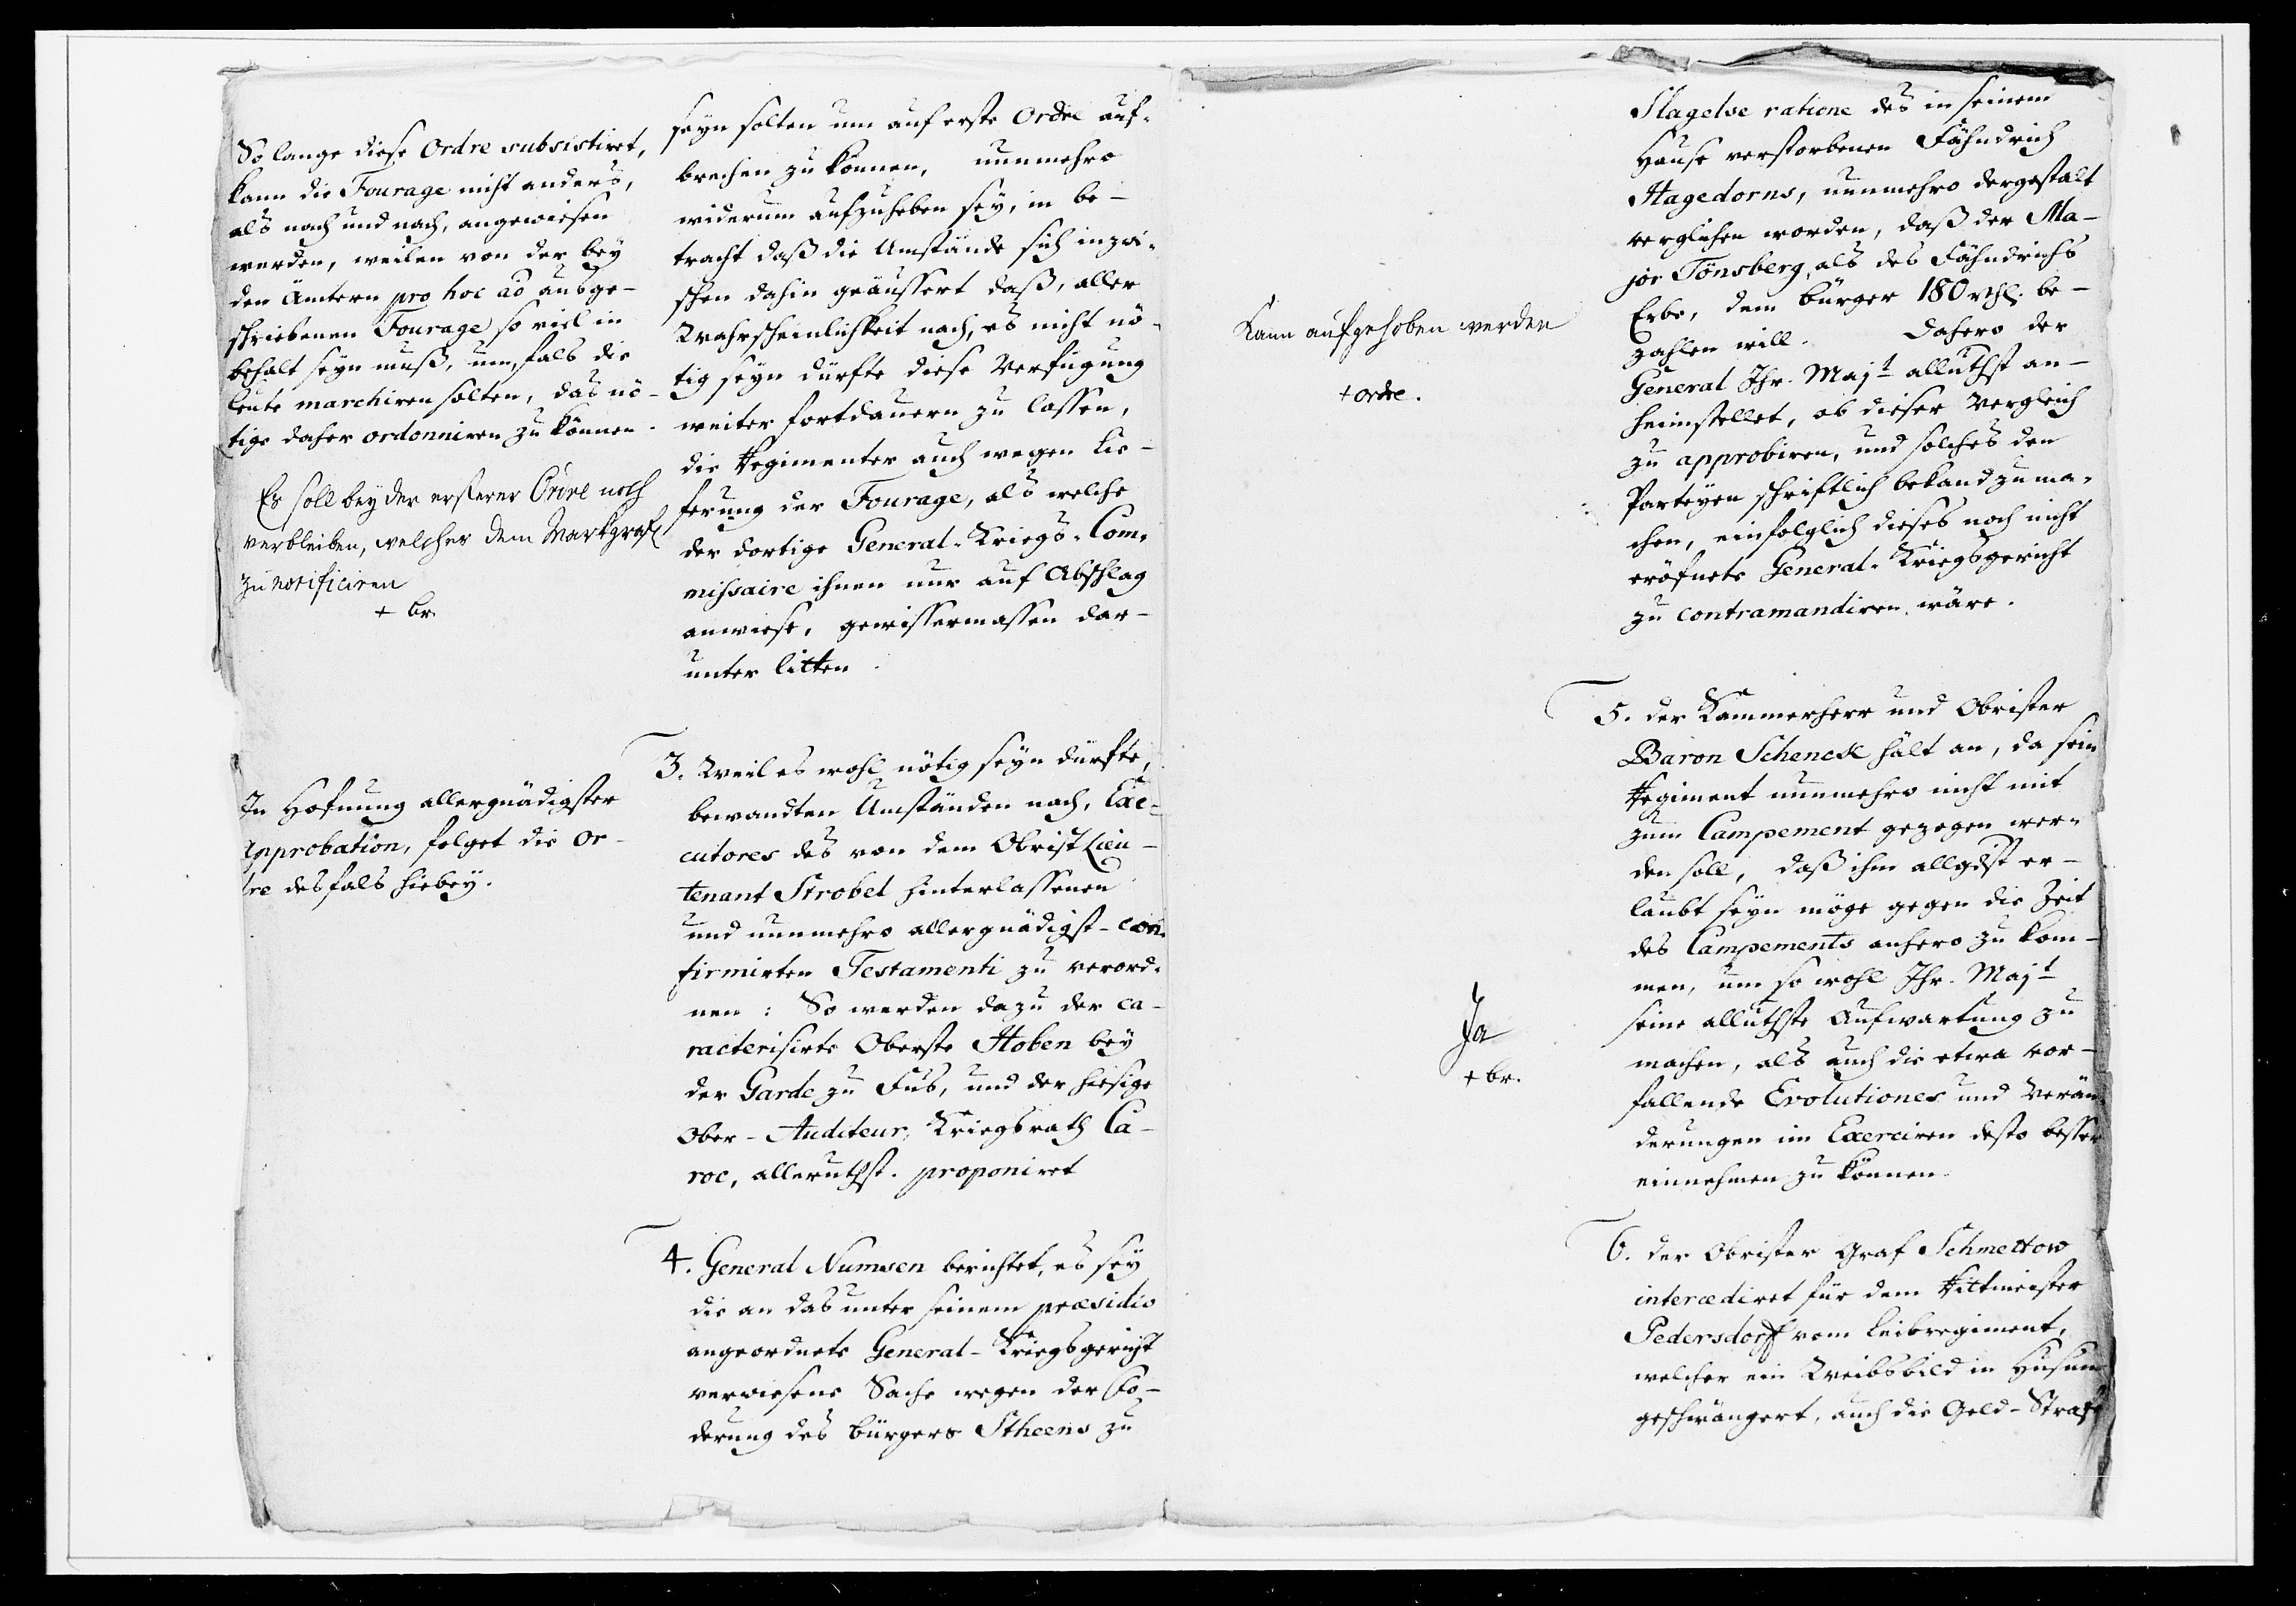 So lange diese Ordre subsistiret,
kann die Fourage nicht anders,
als nach und nach, angewiesen
werden, weilen von der bey
den Ämtern pro hoc ao ausge-
schriebenen Fourage so viel in
behalt seyn muß, um, fals die
leute marchiren solten, das nö-
tige daher ordonniren zu können.
Es soll bey der ersteren Ordre noch
verbleiben, welches dem Markgrafen
zu notificiren
+ br.
In Hofnung allergnädigster
approbation, folget die Or-
dre desfals hiebey.
seyn solten um auf erste Ordre auf-
brechen zu können, nunmehro
widerum aufzuheben sey, in be-
tracht daß die Umstände sich inzwi-
schen dahin geäussert daß, aller
Wahrscheinlichkeit nach, es nicht nö-
tig seyn dürfte diese Verfügung
weiter fortdauern zu lassen,
die Regimenter auch wegen Lie-
ferung der Fourage, als welche
der dortige General-Kriegs-Com-
missaire ihnen nur auf Abschlag
anwiese, gewissermassen dar-
unter litten.
3. Weil es wohl nötig seyn dürfte,
bewandten Umständen nach, Exe-
cutores des von dem Obristlieu-
tenant Strobel hinterlassenen
und nunmehro allergnädigst-con-
firmirten Testamenti zu verord-
nen: So werden dazu der ca-
racterisirte Oberste Hoben bey
der Garde zu Fus, und der hiesige
Ober-Auditeur, Kriegsrath Ca-
roc, alleruthst. proponiret
4. General Numsen berichtet, es sey
die an das unter seinem præsidio
angeordnete General-Kriegsgericht
verwiesene Sache wegen der Fo-
derung des bürgers Stheens zu
Kann aufgehoben werden
+ ordre.
Ja
+ br.
Slagelse ratione des in seinem
Hause verstorbenen Fähndrich
Hagedorns, nunmehro dergestalt
verglichen worden, daß der Ma-
jor Tönsberg, als des Fähndrichs
Erbe, dem bürger 180 rthl. be-
zahlen will. Dahero der
General Ihr. Majt alluthst an-
heimstellet, ob dieser Vergleich
zu approbiren, und solches den
Parteyen schriftlich bekand zu ma-
chen, einfolglich dieses noch nicht
eröfnete General-Kriegsgericht
zu contramandiren wäre.
5. der Kammerherr und Obrister
Baron Schenck hält an, da sein
Regiment nunmehro nicht mit
zum Campement gezogen wer-
den soll, daß ihm allgdst er-
laubt seyn möge gegen die Zeit
des Campements anhero zu kom-
men, um so wohl Ihr. Majt
seine alluthste Aufwartung zu
machen, als auch die etwa vor-
fallende Evolutiones und Verän-
derungen im Exerciren desto besser
einnehmen zu können.
6. der Obrister Graf Schmettow
intercediret für dem Rittmeister
Pedersdorff vom Leibregiment,
welcher ein Weibsbild in Husum
geschwängert, auch die Geld-Strafe